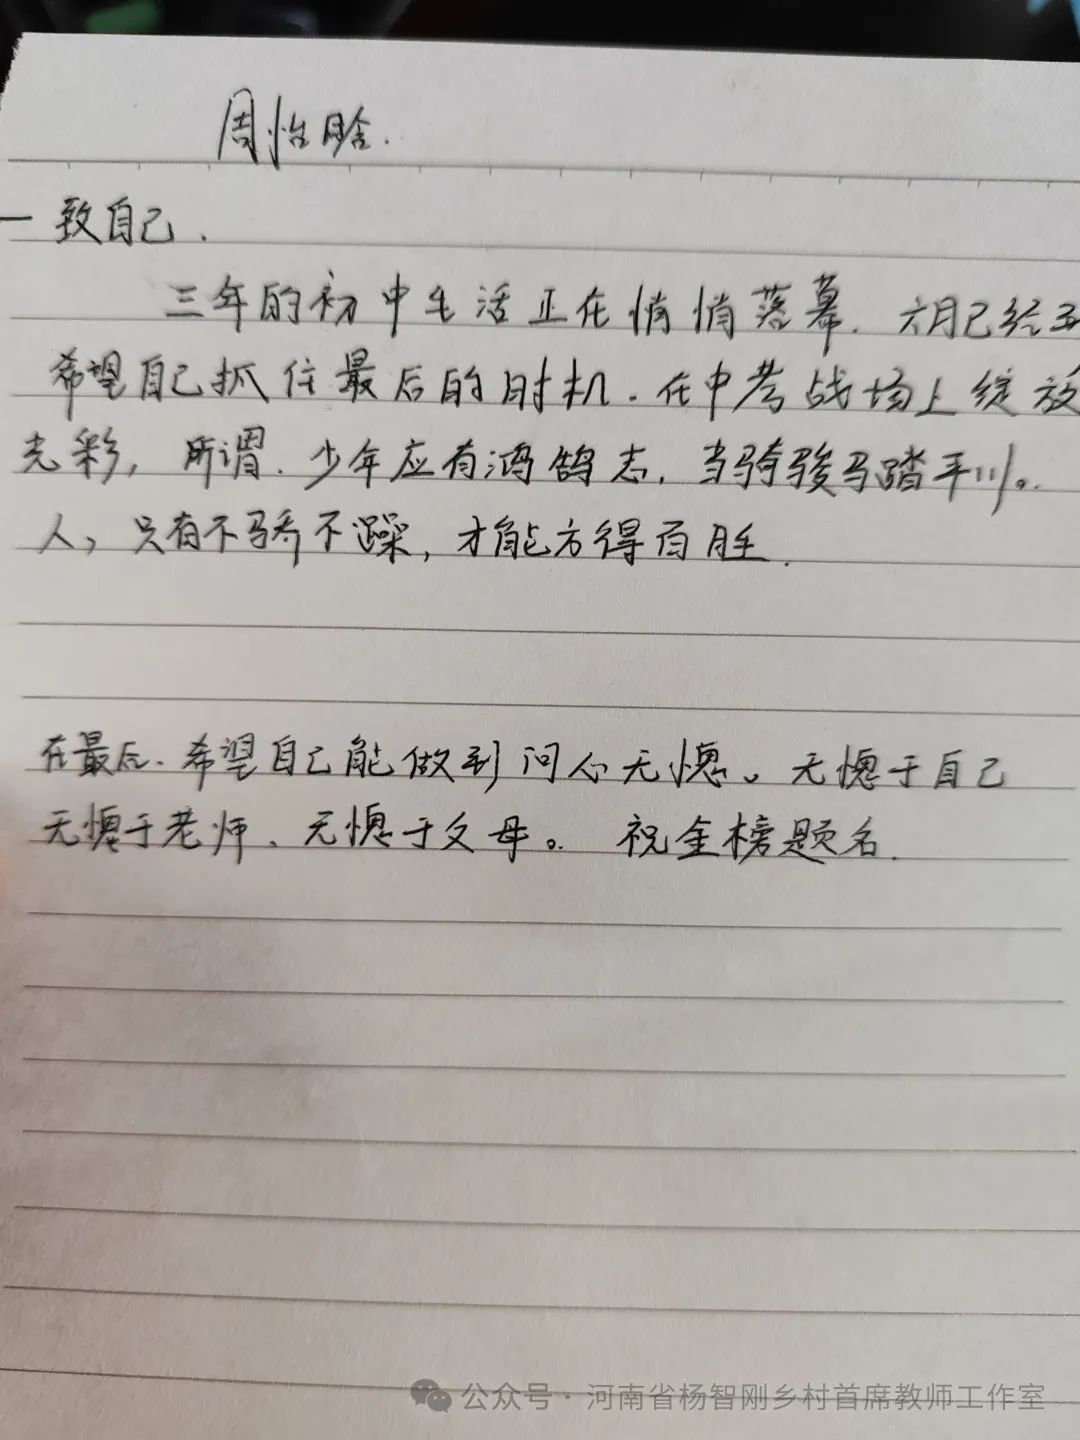 周怡晗.
一致自己.
三年的初中生活正在悄悄落幕.六月已经到
希望自己抓住最后的时机.在中考战场上绽放
光彩,所谓.少年应有鸿鹄志,当骑骏马踏平川。
人,只有不骄不躁,才能方得百胜.
在最后.希望自己能做到问心无愧。无愧于自己
无愧于老师、无愧于父母。祝金榜题名.
公众号·河南省杨智刚乡村首席教师工作室